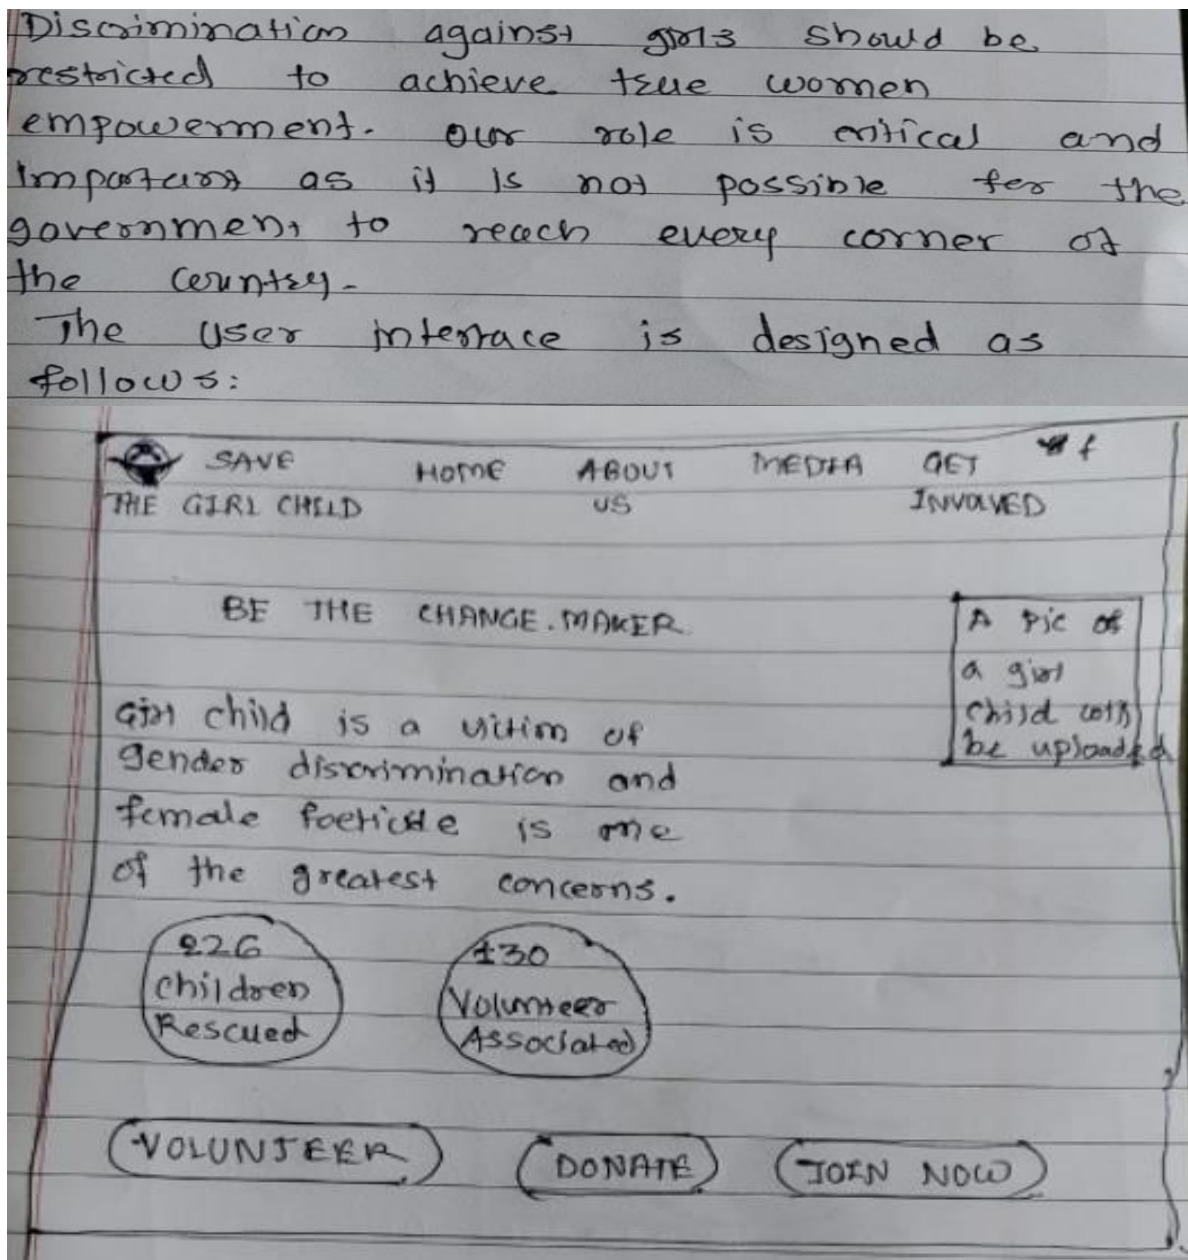 Discrimination against girls should be
restricted to achieve true women
empowerment. Our role is critical and
Important as it is not possible for the
government to reach every corner of
the country.
The user interface is designed as
follows:
SAVE HOME ABOUT MEDIA GET f
THE GIRL CHILD US INVOLVED
BE THE CHANGE.MAKER
A Pic of
a girl
child will
be uploaded
Girl child is a victim of
gender discrimination and
female foeticide is one
of the greatest concerns.
226
Children
Rescued
130
Volunteer
Associated
VOLUNTEER DONATE JOIN NOW